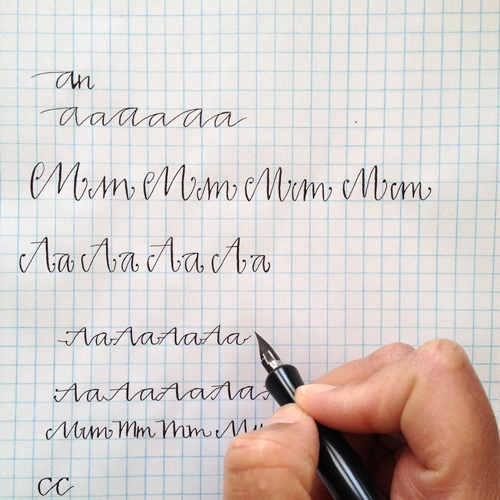 an
aaaaaa
Mm Mm Mm Mm
Aa Aa Aa Aa
AaAaAaAa
AaAaAaAa
Mm Mm Mm
cc